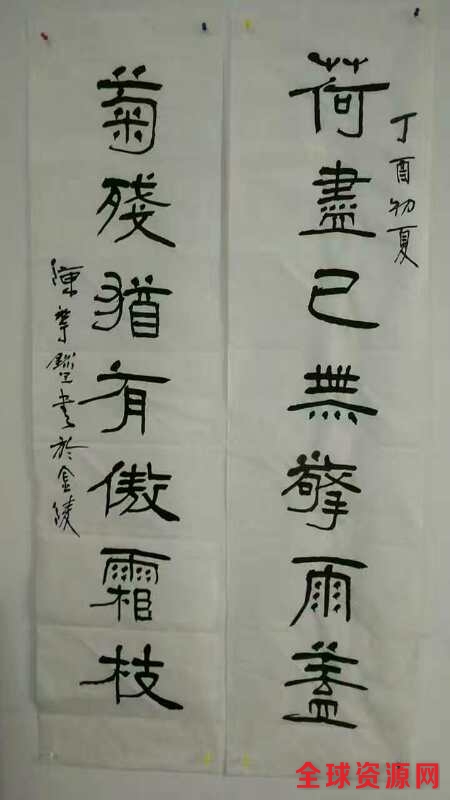 丁酉初夏
荷盡已無擎雨蓋
菊殘猶有傲霜枝
書於金陵
全球资源网